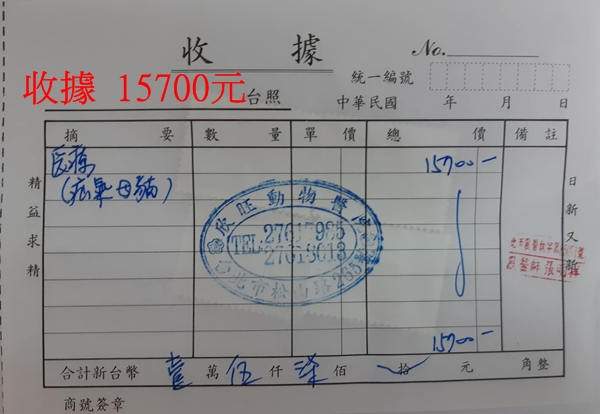 收據
No.
收據 15700元
統一編號
台照
中華民國 年 月 日
摘要 數量 單價 總價 備註
医療 15700-
(疝氣母貓)
精益求精
日新又新
欣旺動物醫院
TEL:27617985
27618013
台北市松山路265號
15700-
合計新台幣 壹萬伍仟柒佰 拾 元 角整
商號簽章